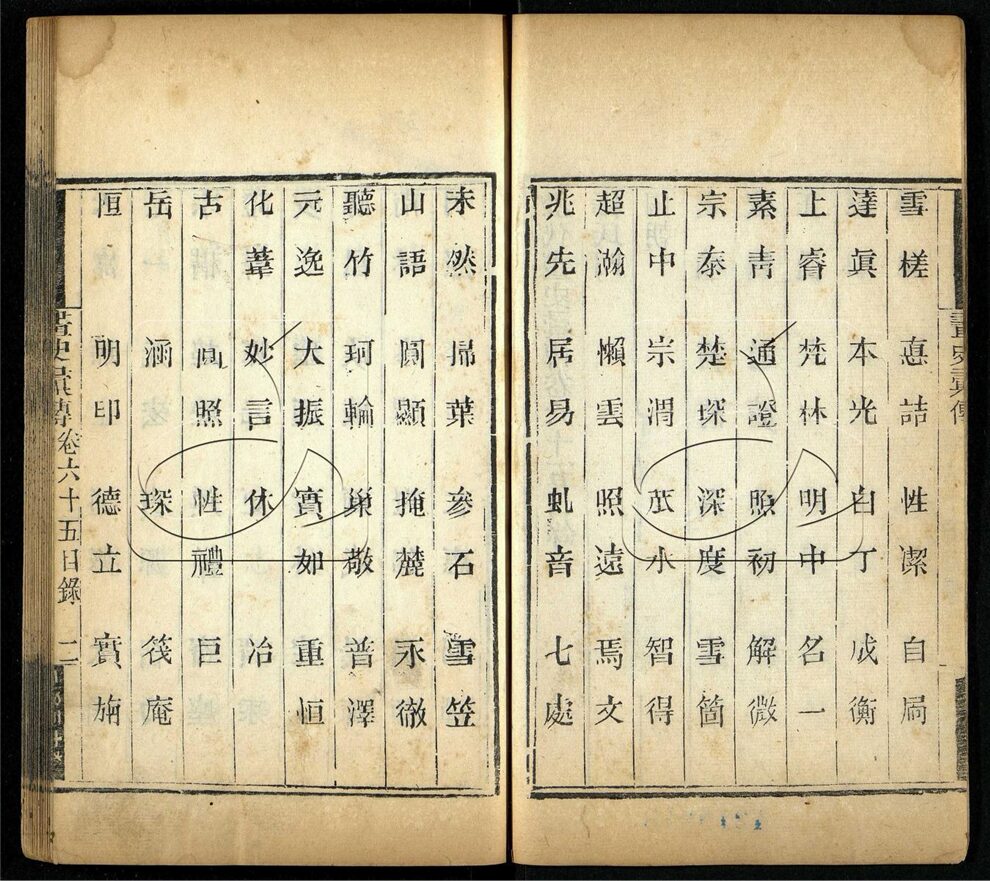 雪槎 悳詰 性潔 自扃
達眞 本光 白丁 成衡
上睿 梵林 明中 名一
素青 通證 照初 解微
宗泰 楚琛 深度 雪箇
止中 宗渭 茁水 智得
超瀚 懶雲 照遠 焉文
兆先 居易 虬音 七處
畫史彙傳
未然 掃葉 參石 雪笠
山語 圓顯 掩麓 永徹
聽竹 珂輪 巢敬 普澤
元逸 大振 實如 重恒
化葦 妙言 休 冶
古 照 性禮 巨
岳 涵 琛 筏庵
恒 明印 德立 實旃
畫史彙傳卷六十五目錄 二